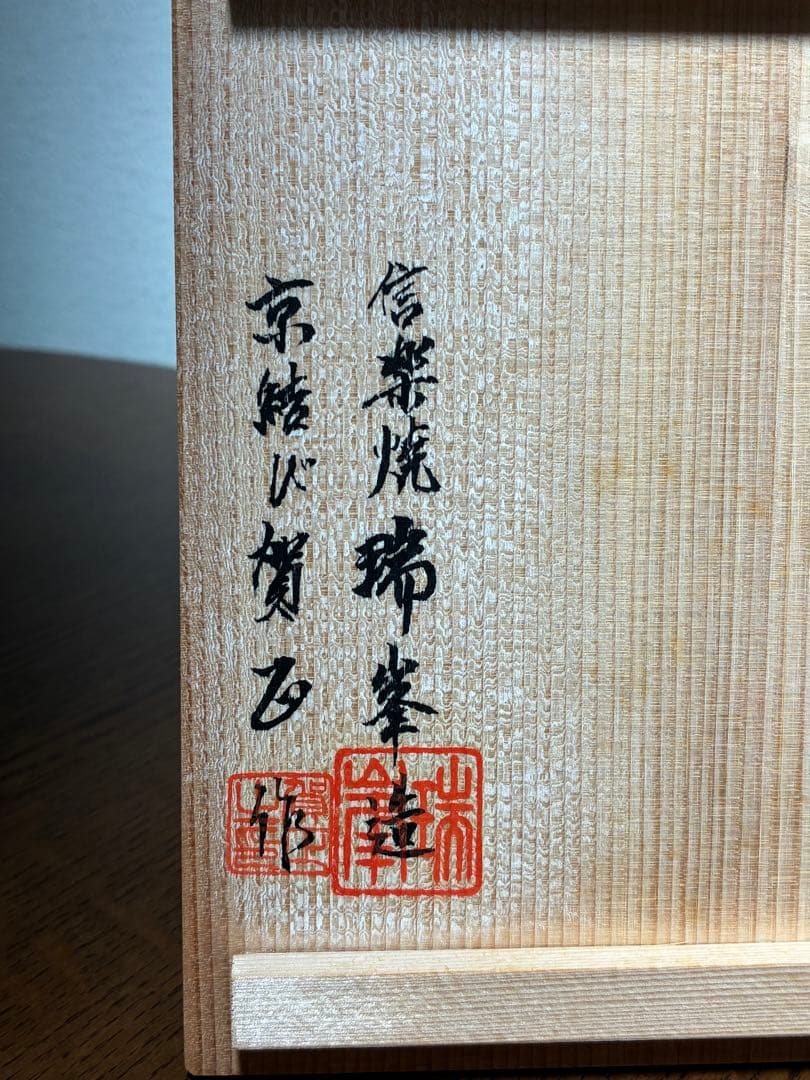 信楽焼 瑞峯造
京結び 賀正作
瑞峯